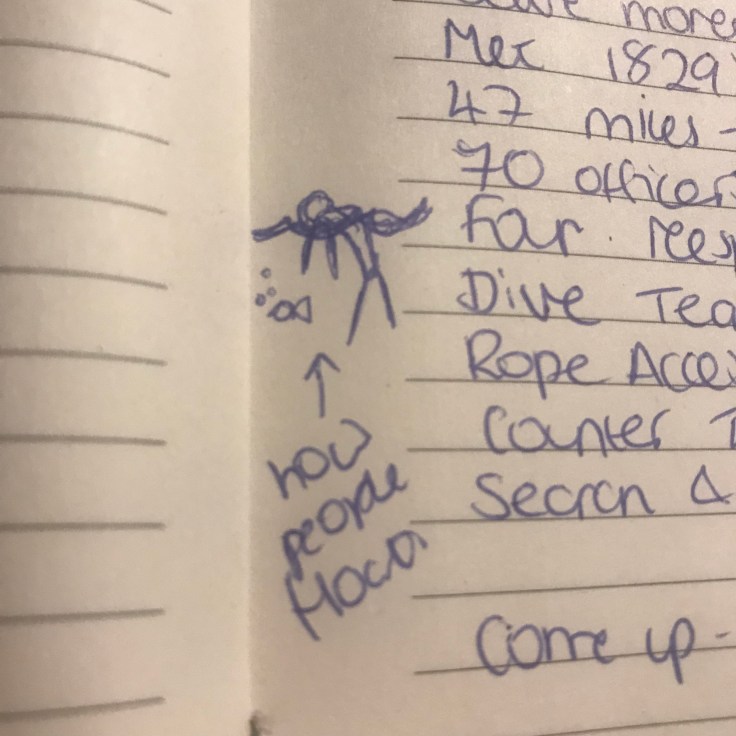 more
Met 1829
47 miles -
70 officer
Far. res
Dive Tea
Rope Acces
Counter T
Search &
Come up -
how
people
float